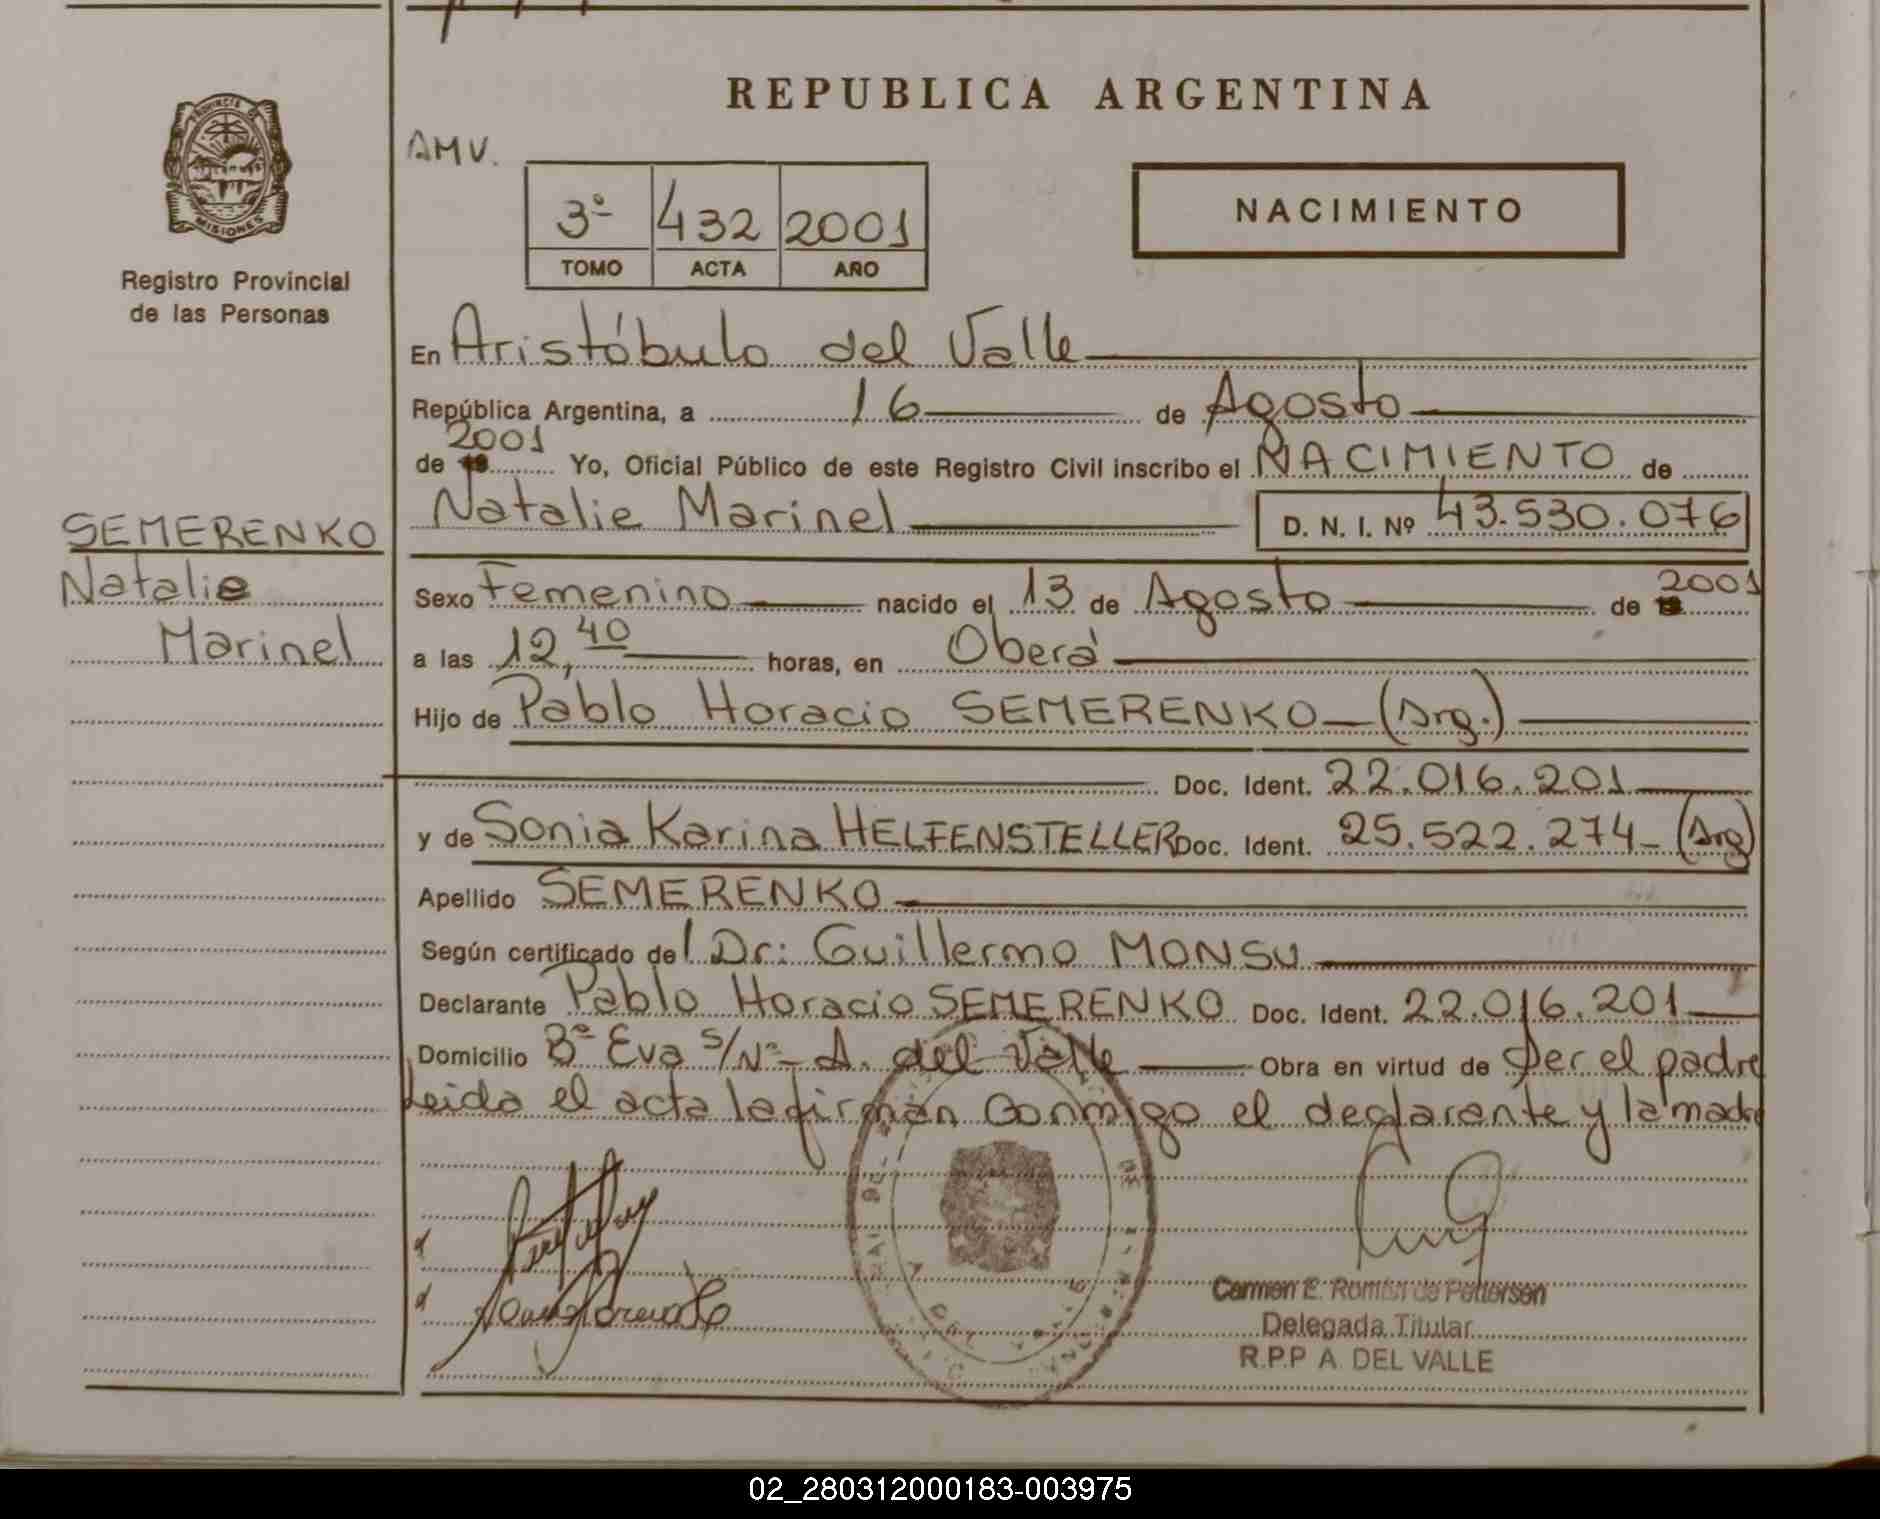 REPUBLICA ARGENTINA
AMV.
3º 432 2001
TOMO ACTA AÑO
NACIMIENTO
PROVINCIA DE
MISIONES
Registro Provincial
de las Personas
En Aristóbulo del Valle
República Argentina, a 16 de Agosto
2001
de 19 Yo, Oficial Público de este Registro Civil inscribo el NACIMIENTO de
Natalie Marinel D. N. I. Nº 43.530.076
SEMERENKO
Natalie
Marinel
Sexo Femenino nacido el 13 de Agosto de 2001
a las 12,40 horas, en Oberá
Hijo de Pablo Horacio SEMERENKO (Arg.)
Doc. Ident. 22.016.201
y de Sonia Karina HELFENSTELLER Doc. Ident. 25.522.274 (Arg)
Apellido SEMERENKO
Según certificado del Dr: Guillermo MONSU
Declarante Pablo Horacio SEMERENKO Doc. Ident. 22.016.201
Domicilio Bº Eva s/Nº A. del Valle Obra en virtud de Ser el padre
Leida el acta la firman conmigo el declarante y la madre
Carmen E. Román de Pettersen
Delegada Titular
R.P.P A. DEL VALLE
02_280312000183-003975